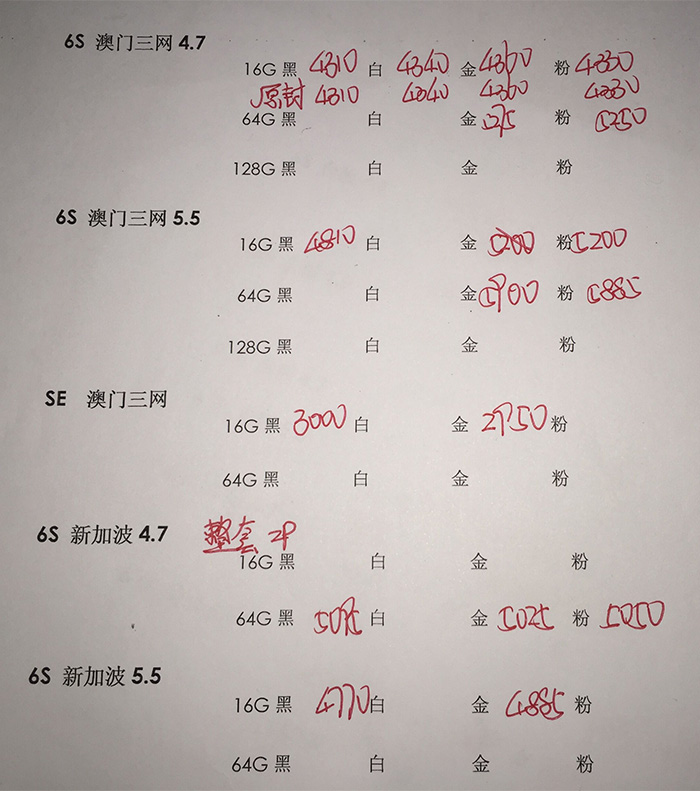 6S 澳门三网 4.7
16G 黑 4310 白 4340 金 4360 粉 4330
原封 4310 4340 4360 4330
64G 黑 白 金 粉 5250
128G 黑 白 金 粉
6S 澳门三网 5.5
16G 黑 4810 白 金 5200 粉 5200
64G 黑 白 金 5900 粉 5885
128G 黑 白 金 粉
SE 澳门三网
16G 黑 3000 白 金 2950 粉
64G 黑 白 金 粉
6S 新加波 4.7 整套
16G 黑 白 金 粉
64G 黑 白 金 5025 粉 5050
6S 新加波 5.5
16G 黑 4770 白 金 4885 粉
64G 黑 白 金 粉